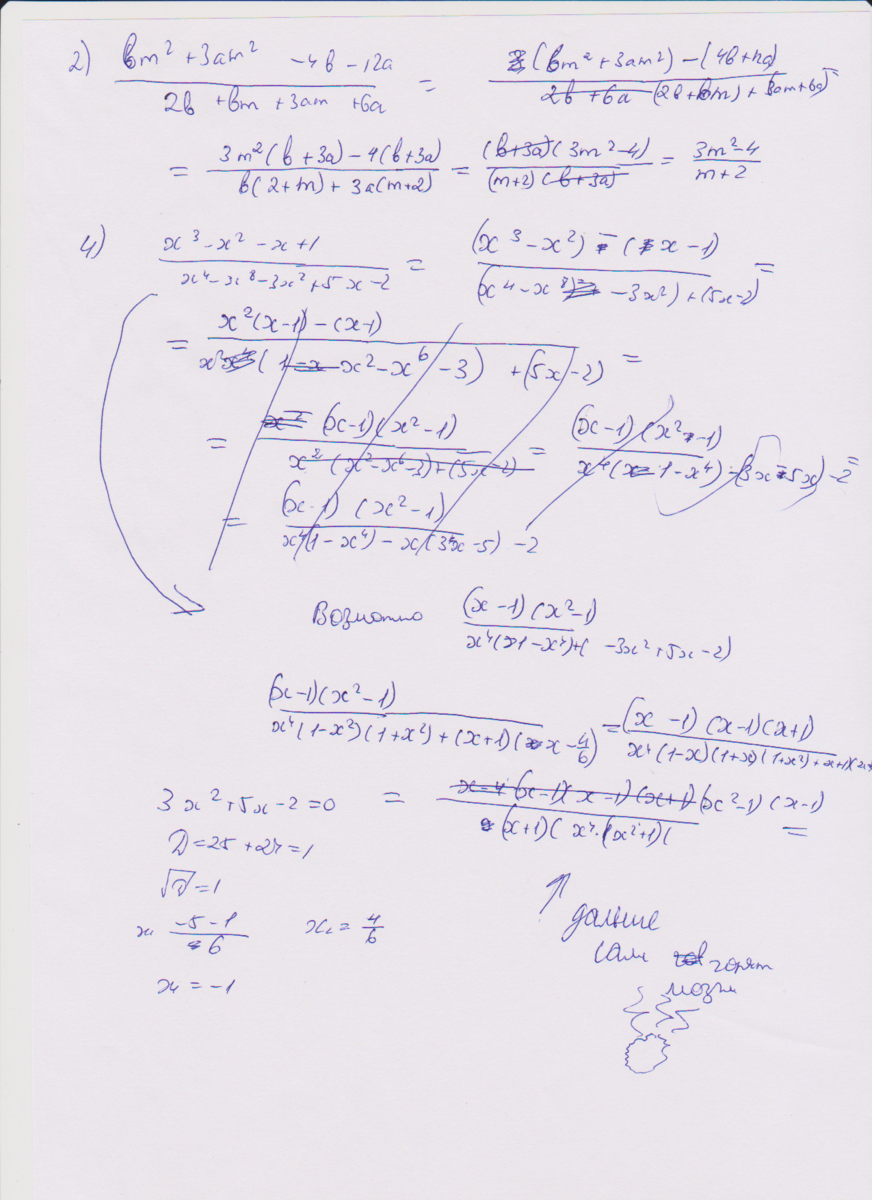 2) (вm² + 3am² - 4в - 12a)/(2в + вm + 3am + 6a) = ((вm² + 3am²) - (4в + 12a))/((2в + вm) + (3am + 6a)) =
= (3m²(в + 3a) - 4(в + 3a))/(в(2 + m) + 3a(m + 2)) = ((в + 3a)(3m² - 4))/((m + 2)(в + 3a)) = (3m² - 4)/(m + 2)
4) (x³ - x² - x + 1)/(x⁴ - x⁸ - 3x² + 5x - 2) = ((x³ - x²) - (x - 1))/((x⁴ - x⁸ - 3x²) + (5x - 2)) =
= (x²(x - 1) - (x - 1))/(x²(x² - x⁶ - 3) + (5x - 2)) =
= ((x - 1)(x² - 1))/(x²(x² - x⁶ - 3) + (5x - 2)) = ((x - 1)(x² - 1))/(x⁴(1 - x⁴) - (3x - 5x) - 2) =
= ((x - 1)(x² - 1))/(x⁴(1 - x⁴) - x(3x - 5) - 2)
Возможно ((x - 1)(x² - 1))/(x⁴(1 - x⁴) + (-3x² + 5x - 2))
((x - 1)(x² - 1))/(x⁴(1 - x²)(1 + x²) + (x + 1)(x - 4/6)) = ((x - 1)(x - 1)(x + 1))/(x⁴(1 - x)(1 + x)(1 + x²) + (x + 1)(
= ((x² - 1)(x - 1))/((x + 1)(x⁴·(x² + 1)( =
3x² + 5x - 2 = 0
D = 25 + 24 = 1
√D = 1
x₁ (-5 - 1)/6 x₂ = 4/6
x₁ = -1
дальше
сам горят
мозги